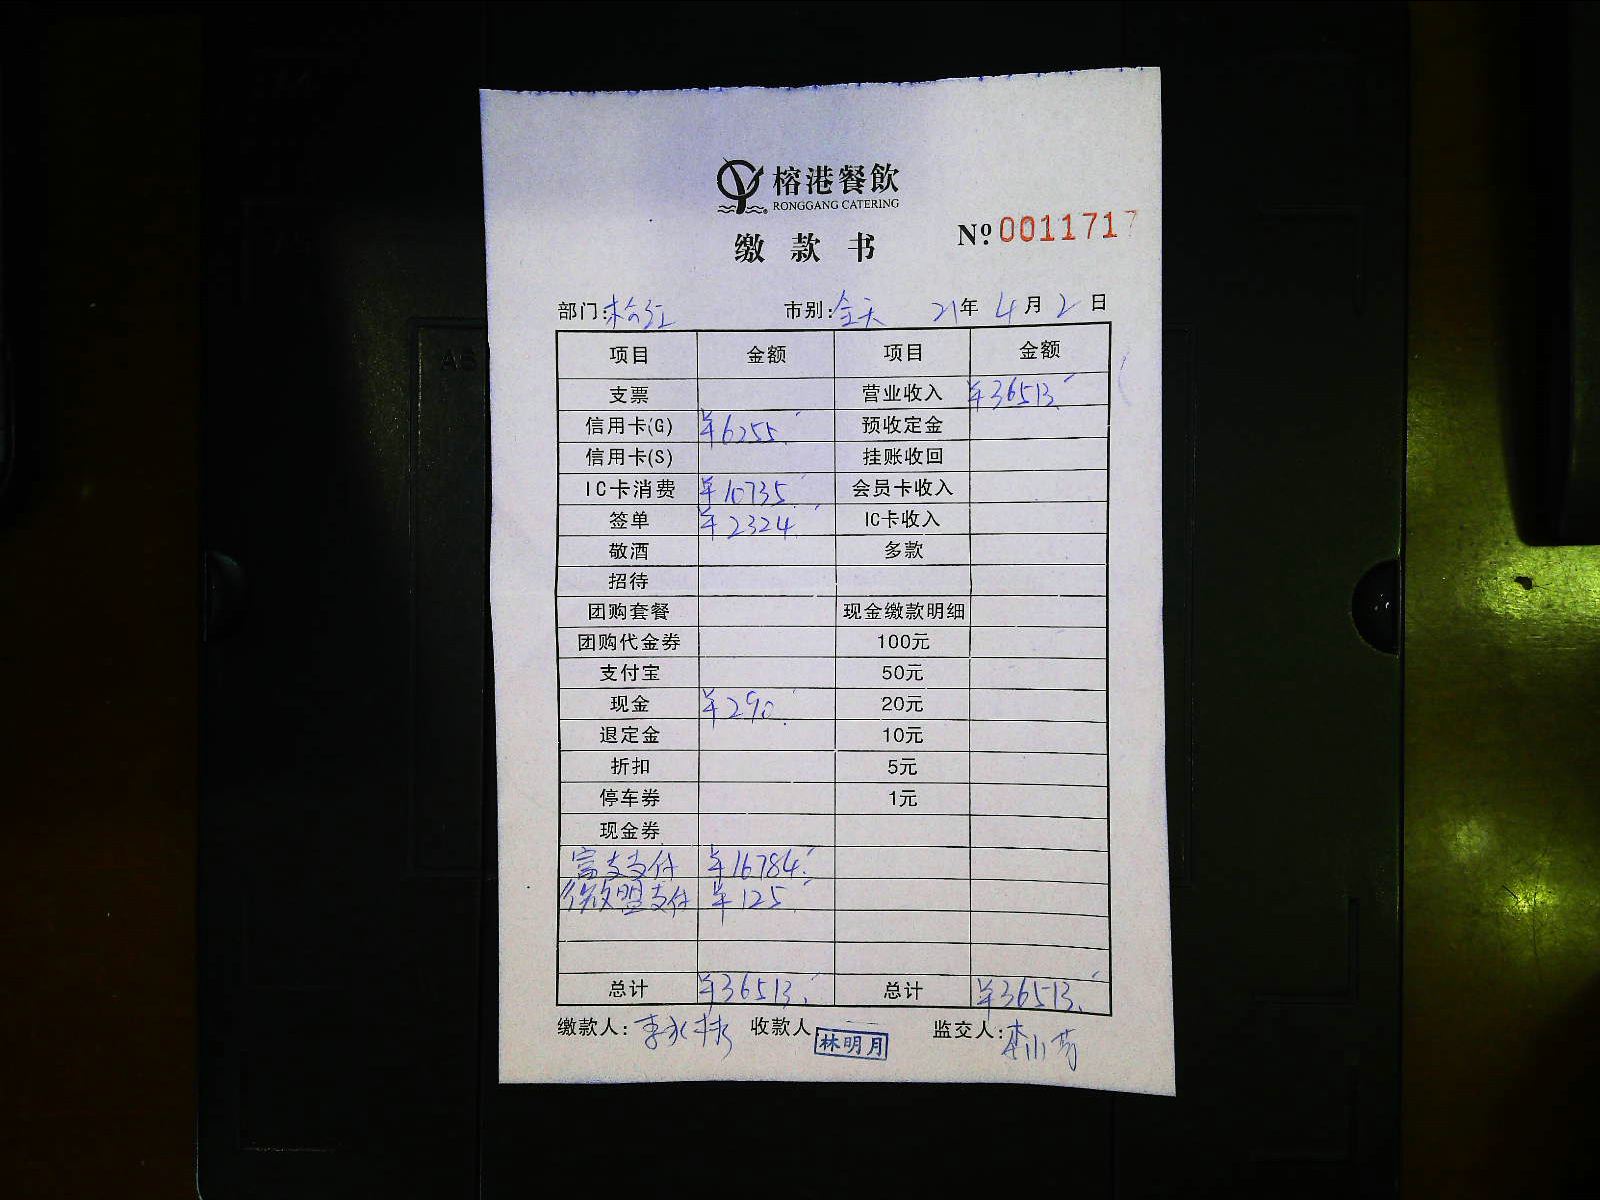 榕港餐飲
RONGGANG CATERING
缴款书
№ 0011717
部门: 市别:全天 21年4月2日
项目 金额 项目 金额
支票 营业收入 ¥36513.
信用卡(G) ¥6255. 预收定金
信用卡(S) 挂账收回
IC卡消费 ¥10735. 会员卡收入
签单 ¥2324. IC卡收入
敬酒 多款
招待
团购套餐 现金缴款明细
团购代金券 100元
支付宝 50元
现金 ¥290. 20元
退定金 10元
折扣 5元
停车券 1元
现金券
富友支付 ¥16784.
微盟支付 ¥125
总计 ¥36513. 总计 ¥36513.
缴款人: 收款人 林明月 监交人: